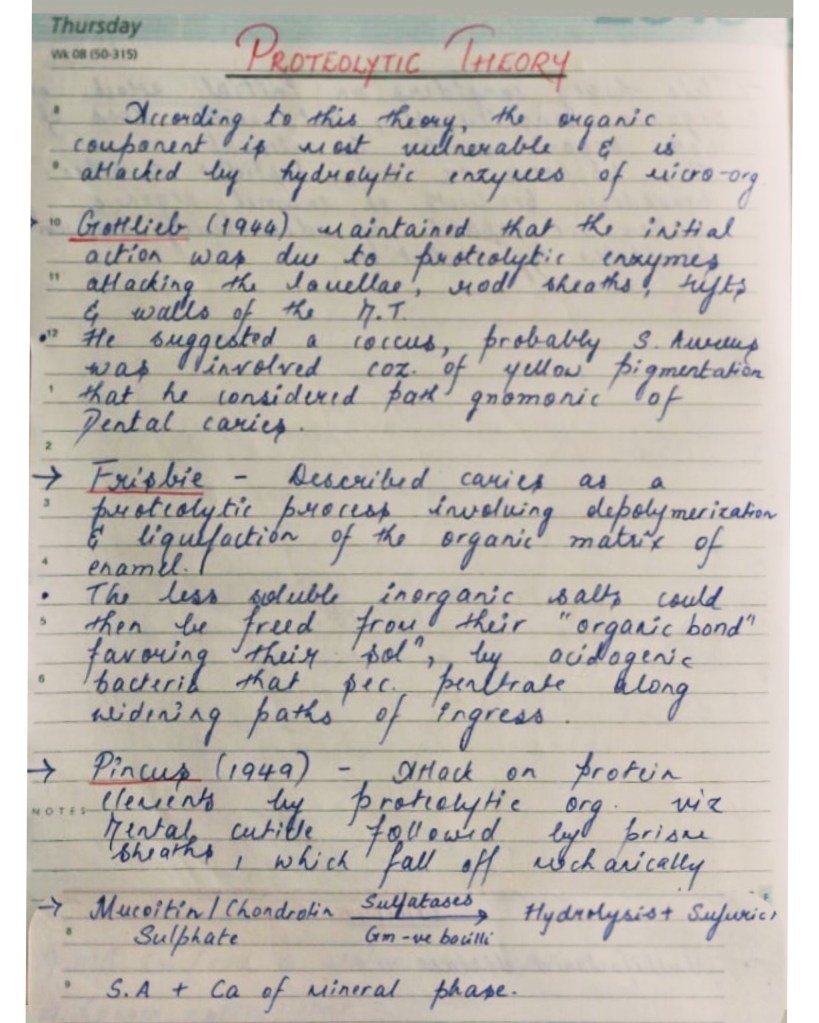 Thursday
Wk 08 (50-315)
PROTEOLYTIC THEORY
8 According to this theory, the organic
component is most vulnerable & is
9 attacked by hydrolytic enzymes of micro-org
10 Gottlieb (1944) maintained that the initial
action was due to proteolytic enzymes
11 attacking the lamellae, rod sheaths, tufts
& walls of the D.T.
• 12 He suggested a coccus, probably S. Aureus
was involved coz. of yellow pigmentation
1 that he considered path gnomonic of
Dental caries.
2
→ Frisbie - Described caries as a
3 proteolytic process involving depolymerization
& liquifaction of the organic matrix of
4 enamel.
• The less soluble inorganic salts could
5 then be freed from their "organic bond"
favoring their solⁿ, by acidogenic
6 bacteria that sec. penetrate along
widening paths of ingress.
→ Pincus (1949) - Attack on protein
NOTES elements by proteolytic org. viz
Dental cuticle followed by prism
sheaths, which fall off mechanically
→ Mucoitin/Chondrotin Sulfatases → Hydrolysis + Sufuric
8 Sulphate Gm -ve bacilli
9 S.A + Ca of mineral phase.